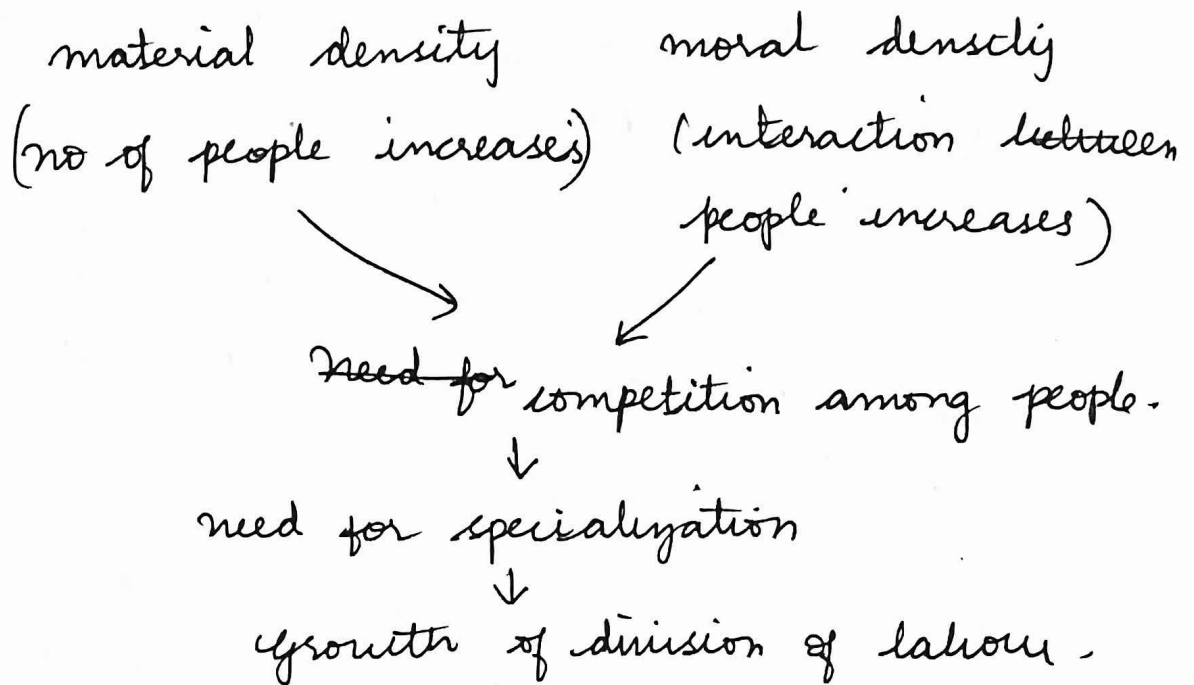 material density
moral density
(no of people increases)
(interaction between
people increases)
need for competition among people.
need for specialization
growth of division of labour.